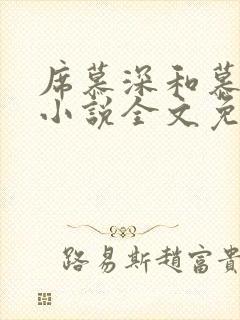 席慕深和慕
小說全文免
路易斯趙富貴